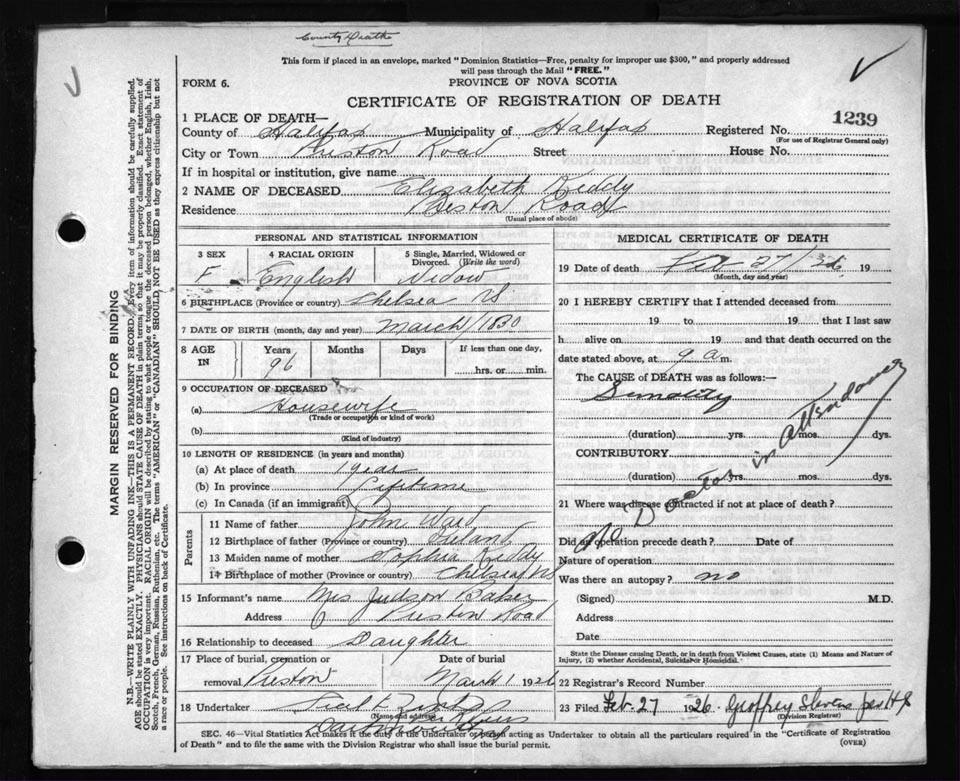 County Deaths
This form if placed in an envelope, marked "Dominion Statistics—Free, penalty for improper use $300," and properly addressed
will pass through the Mail "FREE."
FORM 6. PROVINCE OF NOVA SCOTIA
CERTIFICATE OF REGISTRATION OF DEATH
1239
1 PLACE OF DEATH—
County of Halifax Municipality of Halifax Registered No.
(For use of Registrar General only)
City or Town Preston Road Street House No.
If in hospital or institution, give name
2 NAME OF DECEASED Elizabeth Kiddy
Residence Preston Road
(Usual place of abode)
PERSONAL AND STATISTICAL INFORMATION
3 SEX 4 RACIAL ORIGIN 5 Single, Married, Widowed or Divorced. (Write the word)
F English Widow
6 BIRTHPLACE (Province or country) Chelsea NS
7 DATE OF BIRTH (month, day and year) March / 1830
8 AGE IN Years Months Days If less than one day,
96 hrs. or min.
9 OCCUPATION OF DECEASED
(a) Housewife
(Trade or occupation or kind of work)
(b)
(Kind of industry)
10 LENGTH OF RESIDENCE (in years and months)
(a) At place of death 1 year
(b) In province Lifetime
(c) In Canada (if an immigrant)
Parents
11 Name of father John Ward
12 Birthplace of father (Province or country) Ireland
13 Maiden name of mother Sophia Kiddy
14 Birthplace of mother (Province or country) Chelsea NS
15 Informant's name Mrs Judson Baker
Address Preston Road
16 Relationship to deceased Daughter
17 Place of burial, cremation or removal Preston Date of burial March 1 1926
18 Undertaker
(Name and address)
MEDICAL CERTIFICATE OF DEATH
19 Date of death Feb 27/26 19
(Month, day and year)
20 I HEREBY CERTIFY that I attended deceased from
19 to 19 that I last saw
h alive on 19 and that death occurred on the
date stated above, at 9 a m.
The CAUSE of DEATH was as follows:—
Senility
(duration) yrs. mos. dys.
CONTRIBUTORY
(duration) yrs. mos. dys.
No Doctor in attendance
21 Where was disease contracted if not at place of death?
Did an operation precede death? Date of
Nature of operation
Was there an autopsy? no
(Signed) M.D.
Address
Date
State the Disease causing Death, or in death from Violent Causes, state (1) Means and Nature of
Injury, (2) whether Accidental, Suicidal or Homicidal.
22 Registrar's Record Number
23 Filed Feb. 27 1926 Geoffrey Stevens per
(Division Registrar)
SEC. 46—Vital Statistics Act makes it the duty of the Undertaker or person acting as Undertaker to obtain all the particulars required in the "Certificate of Registration
of Death" and to file the same with the Division Registrar who shall issue the burial permit. (OVER)
MARGIN RESERVED FOR BINDING
N.B.—WRITE PLAINLY WITH UNFADING INK—THIS IS A PERMANENT RECORD. Every item of information should be carefully supplied.
AGE should be stated EXACTLY. PHYSICIANS should STATE CAUSE OF DEATH in plain terms, so that it may be properly classified. Exact statement of
OCCUPATION is very important. RACIAL ORIGIN will be described by stating to what people or tongue the deceased person belonged, whether English, Irish,
Scotch, French, German, Russian, Ruthenian, etc. The terms "AMERICAN" or "CANADIAN" SHOULD NOT BE USED as they express citizenship but not
a race or people. See instructions on back of Certificate.